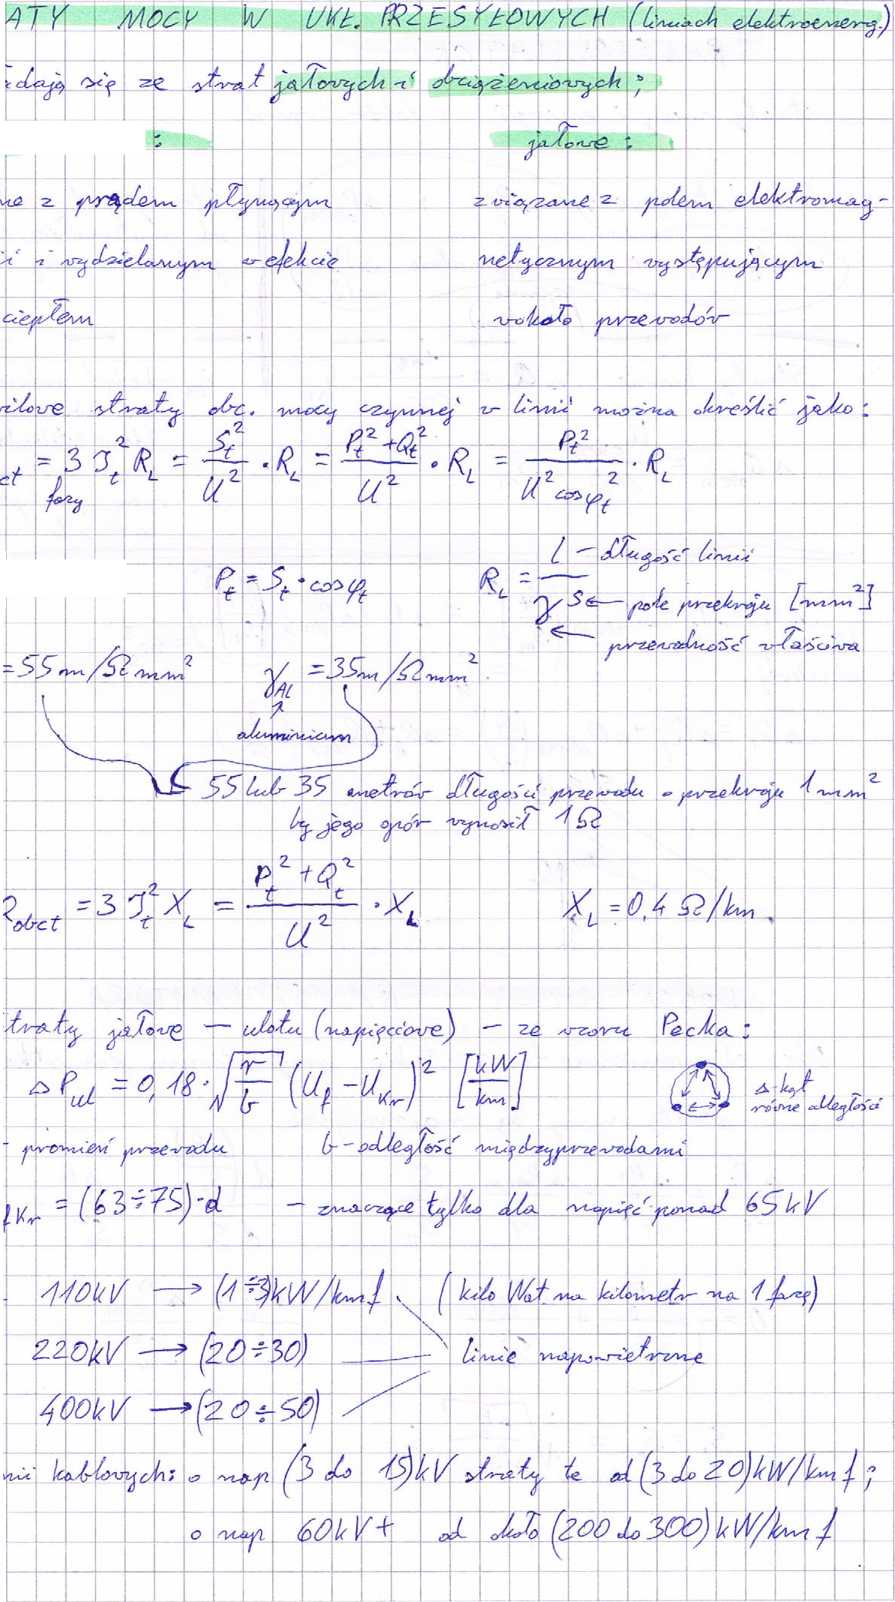 ATY MOCY W UKŁ. PRZESYŁOWYCH (liniach elektroenerg.)
dają się ze strat jałowych i obciążeniowych;
: jałowe:
ne z prądem płynącym związane z polem elektromag-
ii i wydzielanym w efekcie netycznym występującym
ciepłem wokoło przewodów
ilowe straty obc. mocy czynnej w linii można określić jako:
ct = 3 I_t² R_L = S_t²/U² · R_L = P_t² + Q_t²/U² · R_L = P_t²/U² cosφ_t² · R_L
fazy
P_t = S_t · cosφ_t R_L = l/γ S
l – długość linii
S ← pole przekroju [mm²]
← przewodność właściwa
= 55 m/Ω mm² γ_AL = 35 m/Ω mm²
aluminium
55 lub 35 metrów długości przewodu o przekroju 1 mm²
by jego opór wynosił 1 Ω
Q_obct = 3 I_t² X_L = P_t² + Q_t²/U² · X_L X_L = 0,4 Ω/km
traty jałowe – ulotu (napięciowe) – ze wzoru Pecka:
ΔP_ul = 0,18 · √(r/b) (U_f – U_kr)² [kW/km]
Δ-kąt
równe odległości
- promień przewodu b - odległość między przewodami
fkr = (63÷75)·d – znaczące tylko dla napięć ponad 65 kV
110kV → (1÷3) kW/km f (kilo Wat na kilometr na 1 fazę)
220kV → (20÷30) linie napowietrzne
400kV → (20÷50)
nii kablowych: o nap (3 do 15) kV straty te od (3 do 20) kW/km f;
o nap 60kV+ od około (200 do 300) kW/km f